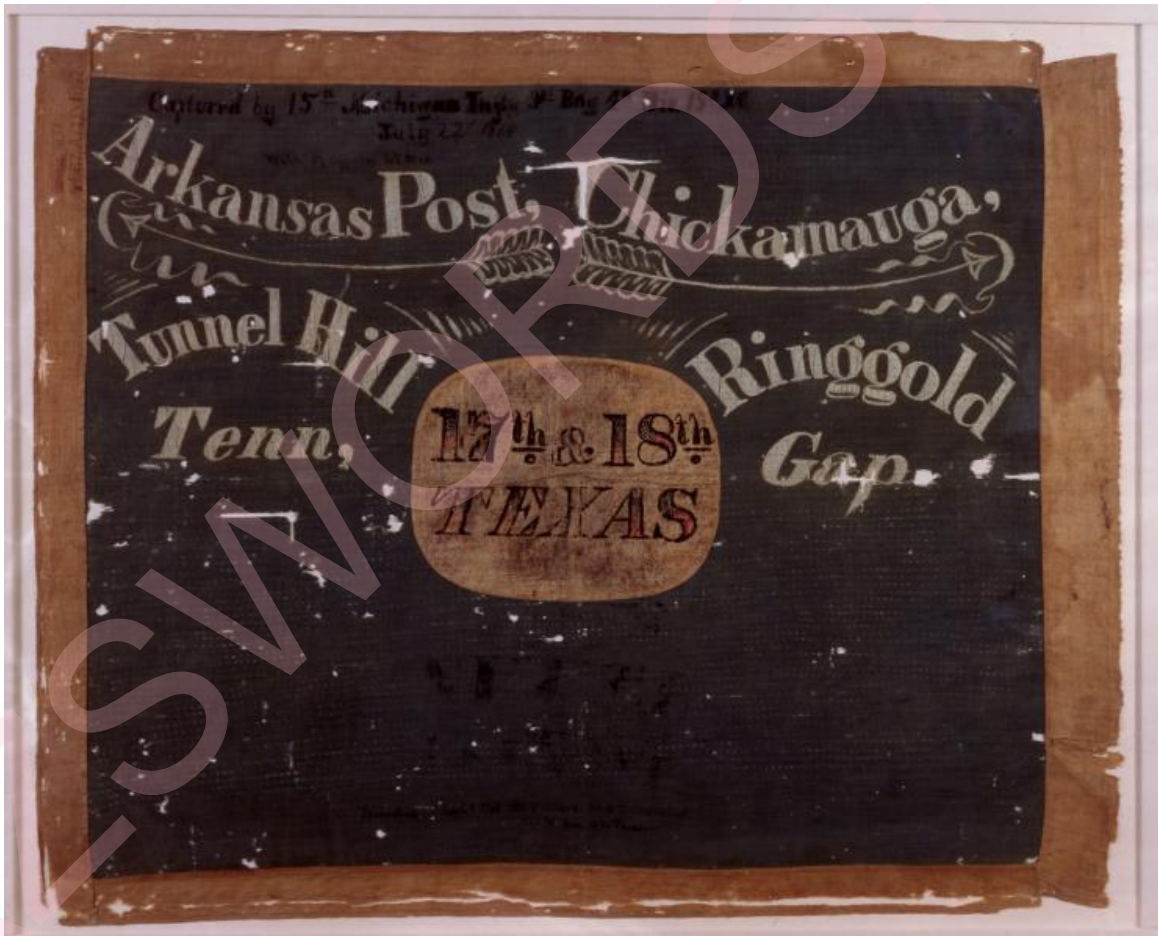 Captured by 15th Michigan Infty 3d Brig 4th Div 15th AC
July 22d 1864
Arkansas Post, Chickamauga,
Tunnel Hill
Tenn,
Ringgold
Gap
17th & 18th
TEXAS
SWORDS